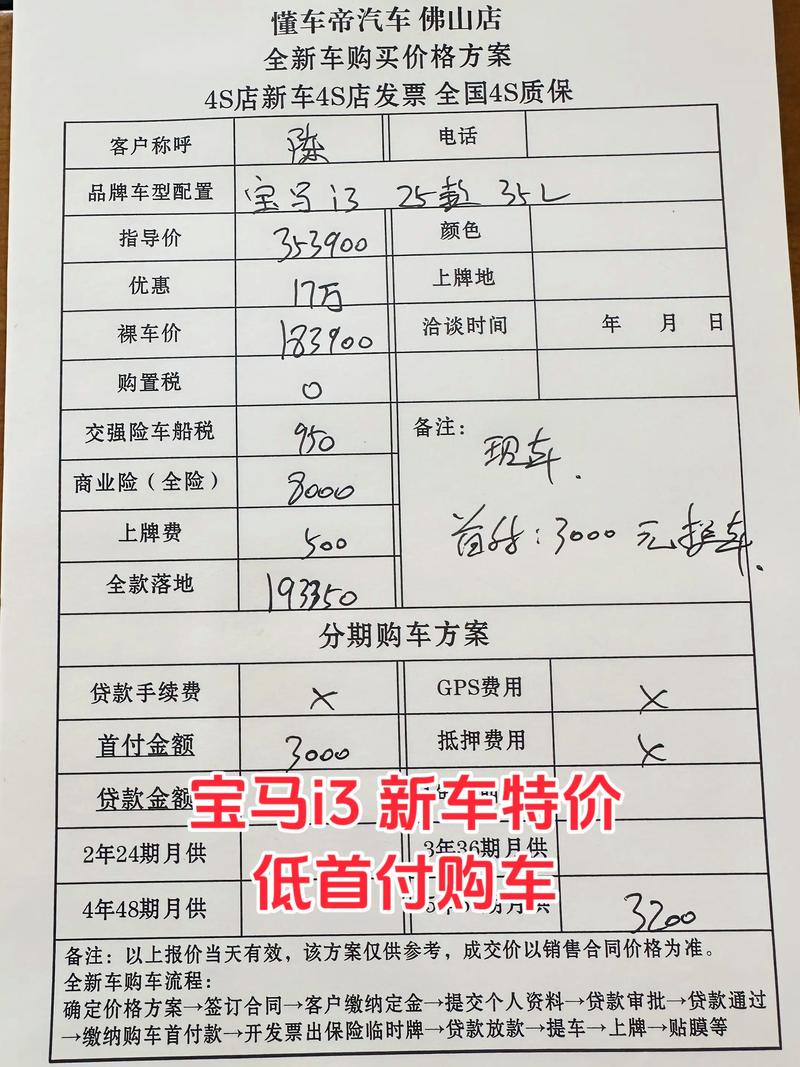 懂车帝汽车 佛山店
全新车购买价格方案
4S店新车4S店发票 全国4S质保
客户称呼 陈 电话
品牌车型配置 宝马i3 25款 35L
指导价 353900 颜色
优惠 17万 上牌地
裸车价 183900 洽谈时间 年 月 日
购置税 0
交强险车船税 950 备注: 现车.
商业险（全险） 8000
上牌费 500 首付:3000元提车.
全款落地 193350
分期购车方案
贷款手续费 × GPS费用 ×
首付金额 3000 抵押费用 ×
贷款金额
宝马i3 新车特价
2年24期月供 3年36期月供
低首付购车
4年48期月供 3200
备注：以上报价当天有效，该方案仅供参考，成交价以销售合同价格为准。
全新车购车流程：
确定价格方案→签订合同→客户缴纳定金→提交个人资料→贷款审批→贷款通过
→缴纳购车首付款→开发票出保险临时牌→贷款放款→提车→上牌→贴膜等